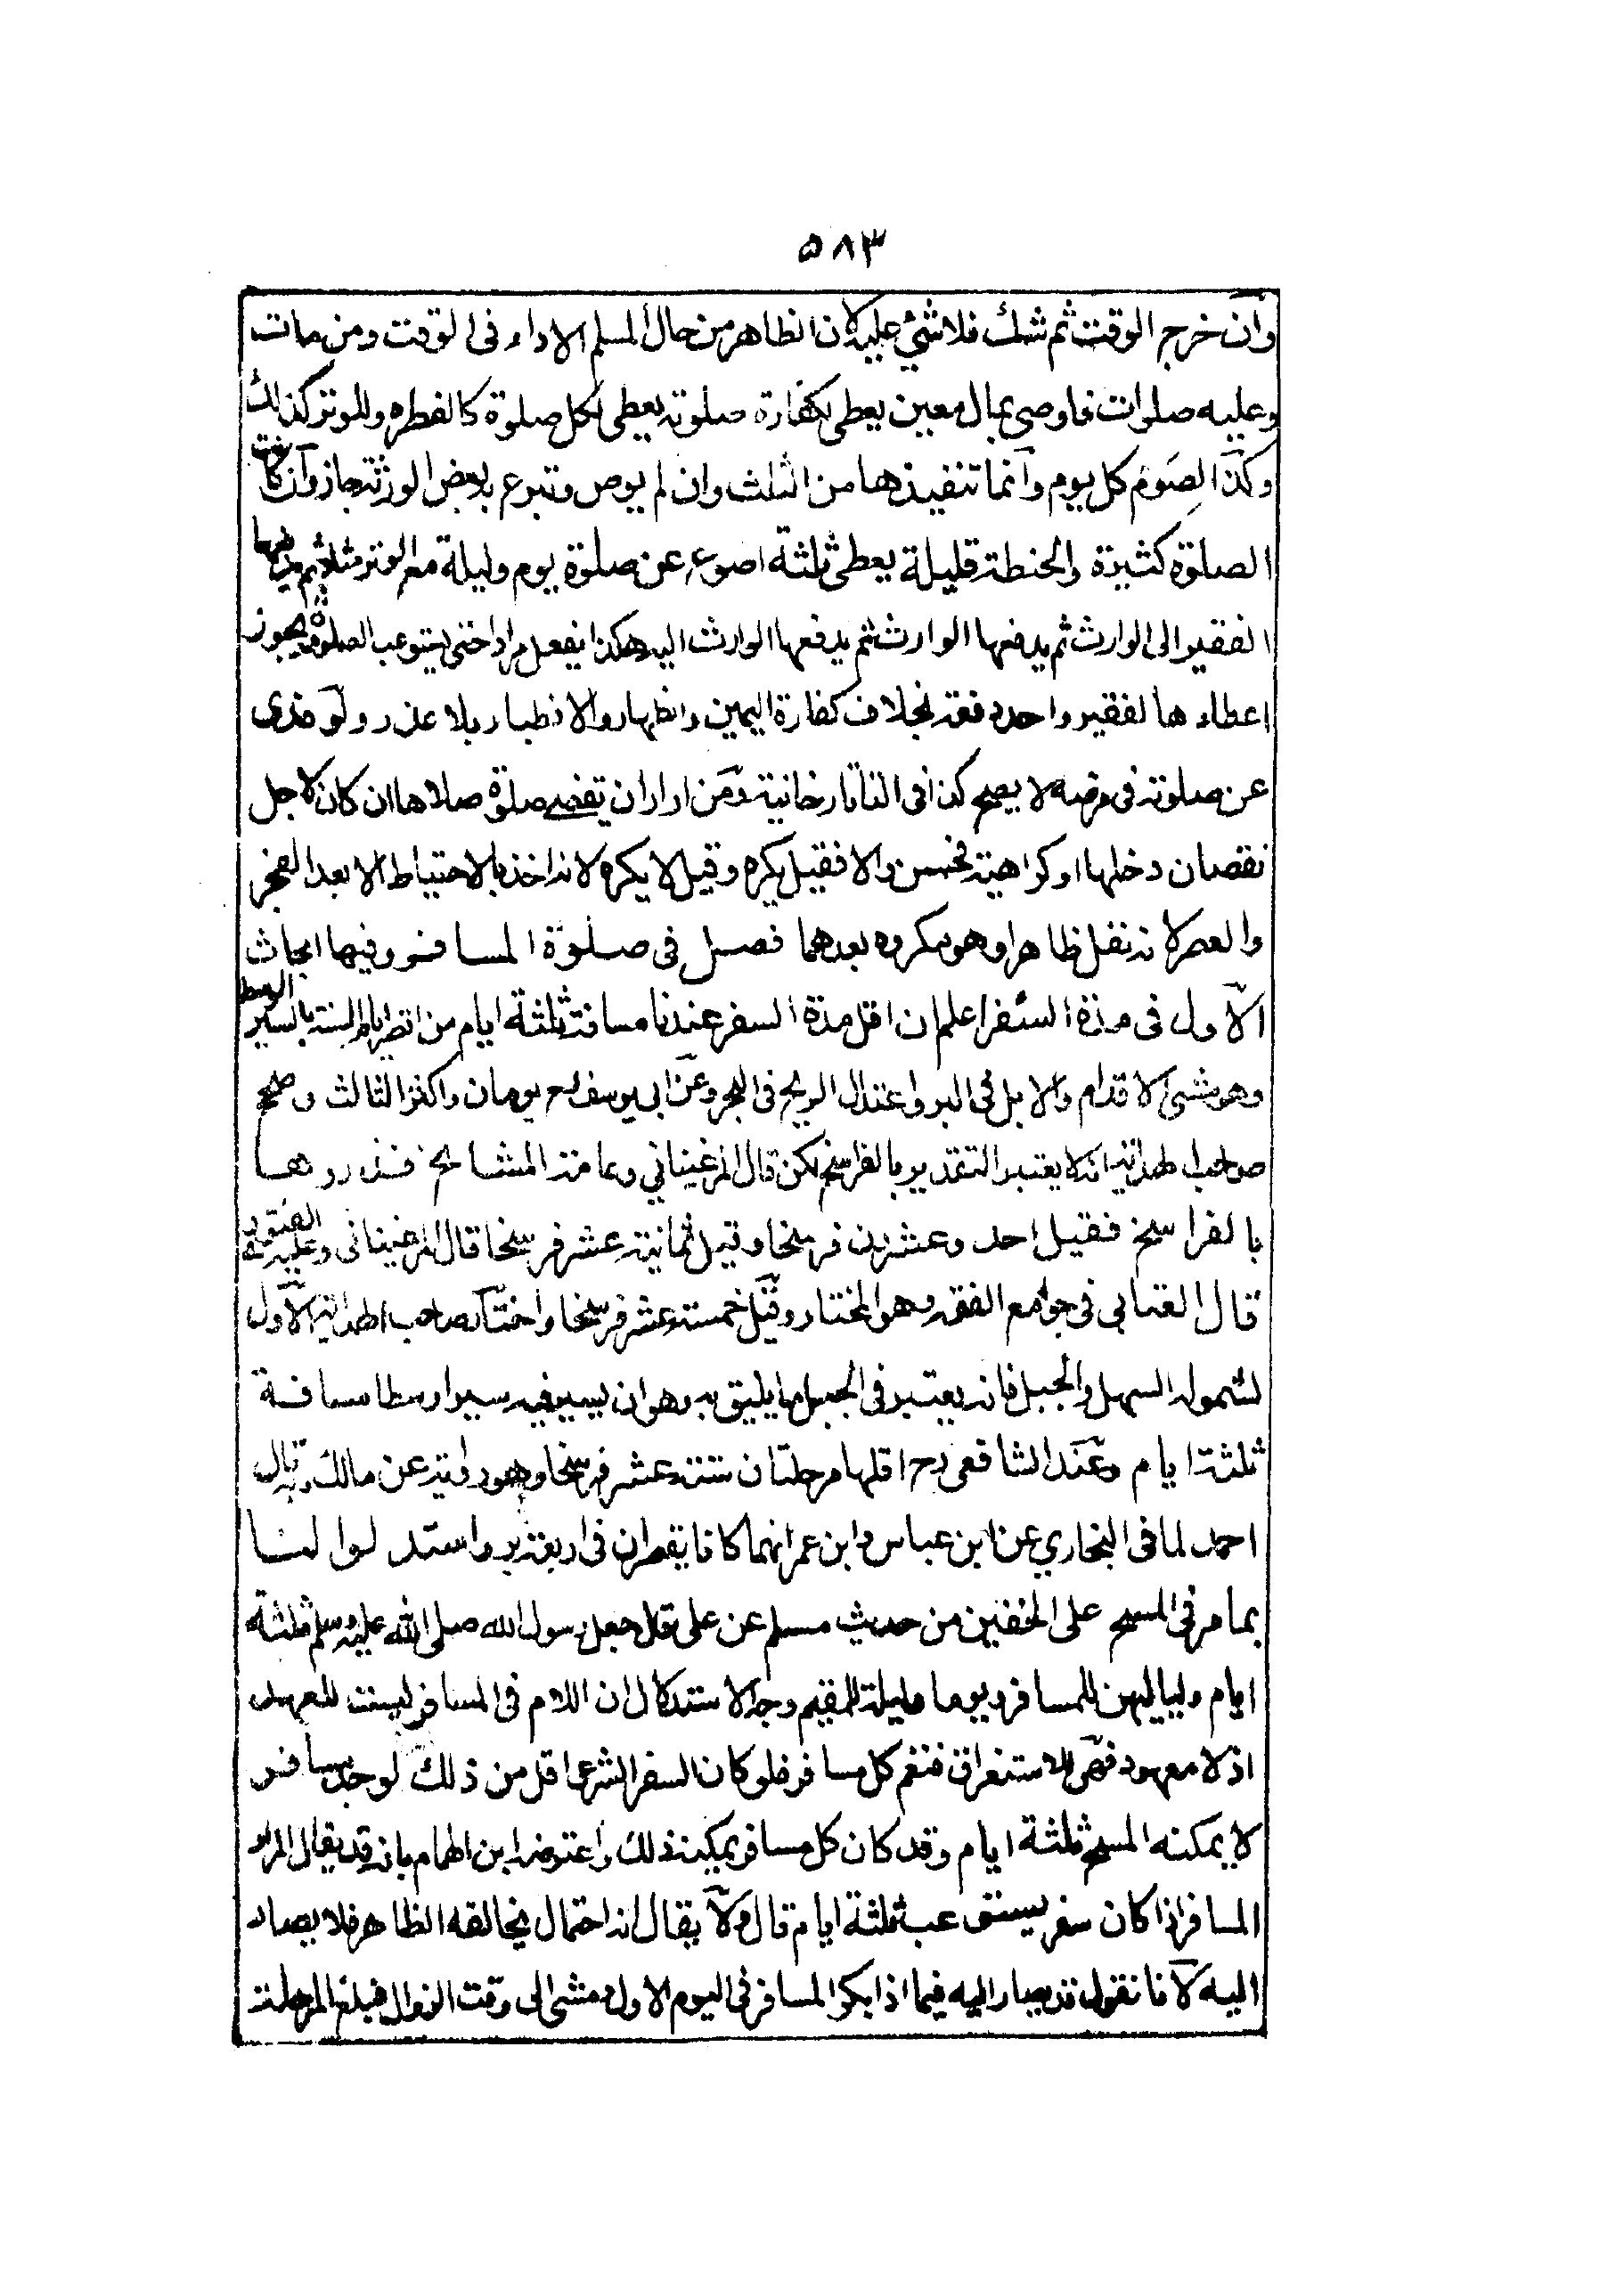 ۵۸۳
وان خرج الوقت ثم شك فلا شئ عليه لان الظاهر من حال المسلم الاداء فى الوقت ومن مات
وعليه صلوات فاوصى بمال معين يعطى لكفارة صلوته يعطى لكل صلوة كالفطره وللوتر كذلك
وكذا الصوم كل يوم وانما تنفيذها من الثلث وان لم يوص وتبرع بلبعض الورثة جاز وان كانت
الصلوة كثيرة والحنطة قليلة يعطى ثلثة اصوع عن صلوة يوم وليلة مع الوتر مثلا ثم يدفعها
الفقير الى الوارث ثم يدفعها الوارث ثم يدفعها الوارث اليه هكذا يفعل مرارا حتى يستوعب الصلوة ويجوز
اعطاءها لفقير واحد دفعة بخلاف كفارة اليمين والظهار والافطار بلا عذر ولو فدى
عن صلوته فى مرضه لا يصح كذا فى التاتارخانية ومن اراد ان يقضى صلوة صلاها ان كان لاجل
نقصان دخلها او كراهية فحسن والا فقيل يكره وقيل لا يكره لانه اخذ بالاحتياط الا بعد الفجر
والعصر لانه نفل ظاهرا وهو مكروه بعدهما فصل فى صلوة المسافر وفيها ابحاث
الاول فى مدة السفر اعلم ان اقل مدة السفر عندنا مسافة ثلثة ايام من اقصر ايام السنة بالسير الوسط
وهو مشى الاقدام والابل فى البر واعتدال الريح فى البحر وعن ابى يوسف رح يومان واكثر الثالث وصحح
صاحب الهداية انه لا يعتبر التقدير بالفراسخ لكن قال المرغيناني وعامة المشائخ قدروها
بالفراسخ فقيل احد وعشرين فرسخا وقيل ثمانية عشر فرسخا قال المرغينانى وعليه الفتوى
قال العتابى فى جوامع الفقه وهو المختار وقيل خمسة عشر فرسخا واختار صاحب الهداية الاول
لشموله السهل والجبل فانه يعتبر فى الجبل ما يليق به وهو ان يسير فيه سيرا وسطا مسافة
ثلثة ايام وعند الشافعى رح اقلها مرحلتان ستة عشر فرسخا وهو رواية عن مالك وبه قال
احمد لما فى البخاري عن ابن عباس وابن عمر انهما كانا يقصران فى اربعة برد واستدلوا لنا
بما مر فى المسح على الخفين من حديث مسلم عن على قال جعل رسول الله صلى الله عليه وسلم ثلثة
ايام ولياليهن للمسافر ويوما وليلة للمقيم وجه الاستدلال ان اللام فى المسافر ليست للعهد
اذ لا معهود فهى للاستغراق فتعم كل مسافر فلو كان السفر الشرعى اقل من ذلك لوجد مسافر
لا يمكنه المسح ثلثة ايام وقد كان كل مسافر يمكنه ذلك واعترض ابن الهمام بانه قد يقال المراد
المسافر اذا كان سفر يستوعب ثلثة ايام قال ولا يقال انه احتمال يخالفه الظاهر فلا يصار
اليه لانا نقول قد يصار اليه فيما اذا بكر المسافر فى اليوم الاول ومشى الى وقت الزوال فبلغ المرحلة